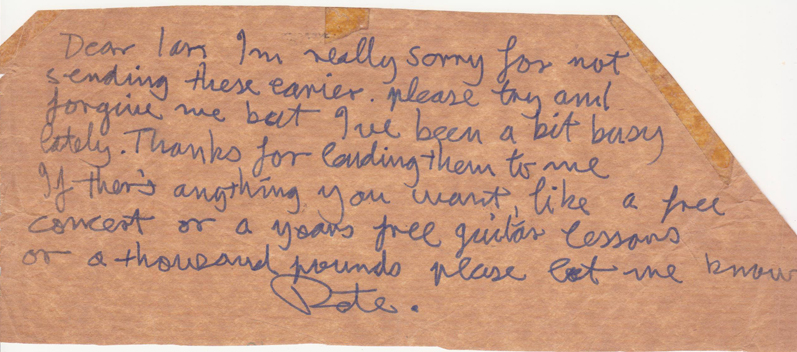 Dear Ian I'm really sorry for not
sending these earier. please try and
forgive me but I've been a bit busy
lately. Thanks for lending them to me
If there's anything you want, like a free
concert or a years free guitar lessons
or a thousand pounds please let me know
Pete.